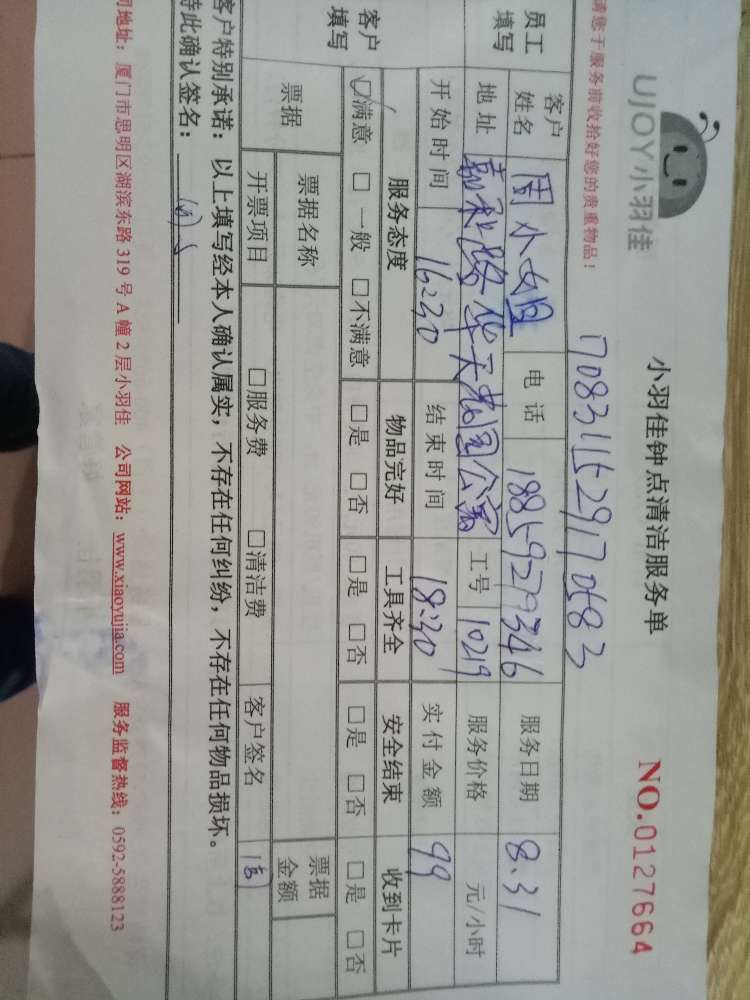 UJOY小羽佳
小羽佳钟点清洁服务单
NO.0127664
请您于服务前收拾好您的贵重物品！
员工填写
客户姓名 周小姐 电话 18859279346 服务日期 8.31
地址 工号 10219 服务价格 元/小时
开始时间 16:30 结束时间 18:30 实付金额 99
客户填写
服务态度 物品完好 工具齐全 安全结束 收到卡片
☑满意 □一般 □不满意 □是 □否 □是 □否 □是 □否 □是 □否
票据 票据名称 票据金额
开票项目 □服务费 □清洁费 客户签名
客户特别承诺：以上填写经本人确认属实，不存在任何纠纷，不存在任何物品损坏。
特此确认签名：
司地址：厦门市思明区湖滨东路 319 号 A 幢 2 层小羽佳 公司网站：www.xiaoyujia.com 服务监督热线：0592-5888123